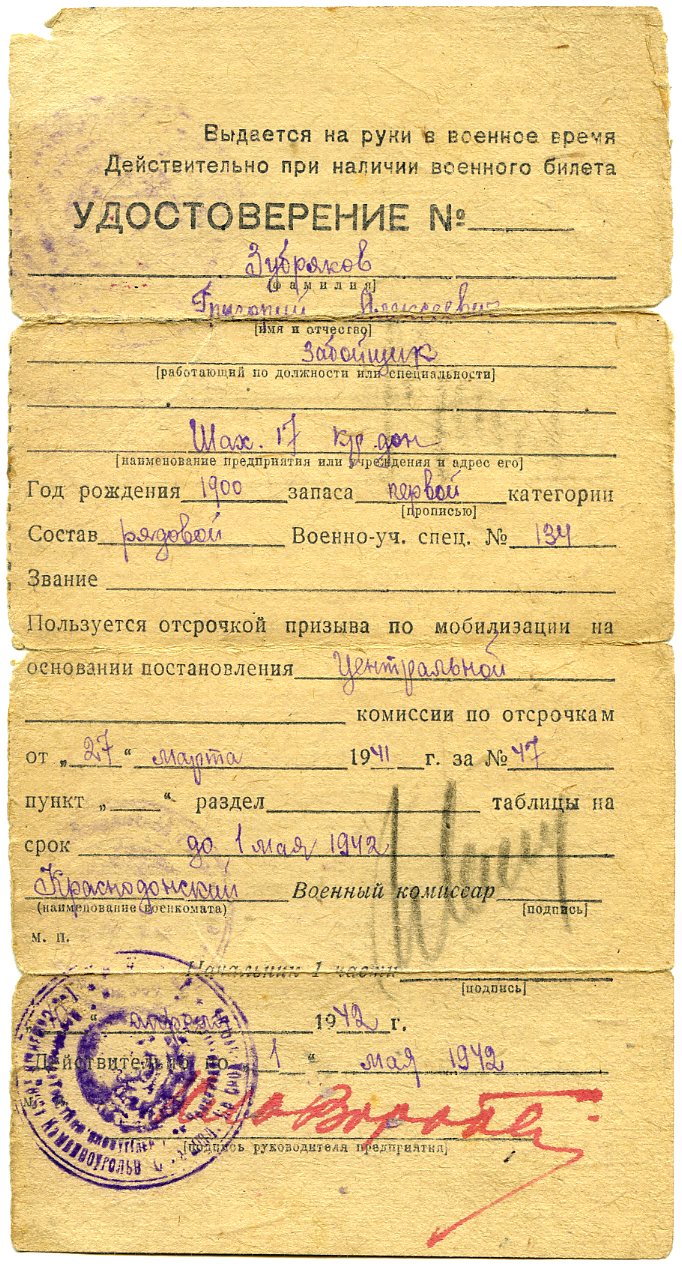 Выдается на руки в военное время
Действительно при наличии военного билета
УДОСТОВЕРЕНИЕ №
Зубряков
[фамилия]
Григорий Алексеевич
[имя и отчество]
Забойщик
[работающий по должности или специальности]
Шах. 17 Кр. дон
[наименование предприятия или учреждения и адрес его]
Год рождения 1900 запаса первой категории
[прописью]
Состав рядовой Военно-уч. спец. № 134
Звание
Пользуется отсрочкой призыва по мобилизации на
основании постановления Центральной
комиссии по отсрочкам
от „27“ марта 1941 г. за № 47
пункт „ “ раздел таблицы на
срок до 1 мая 1942
Краснодонский Военный комиссар
(наименование военкомата) [подпись]
м. п.
Начальник 1 части
[подпись]
“ 1942 г.
Действительно по „1“ мая 1942
[подпись руководителя предприятия]